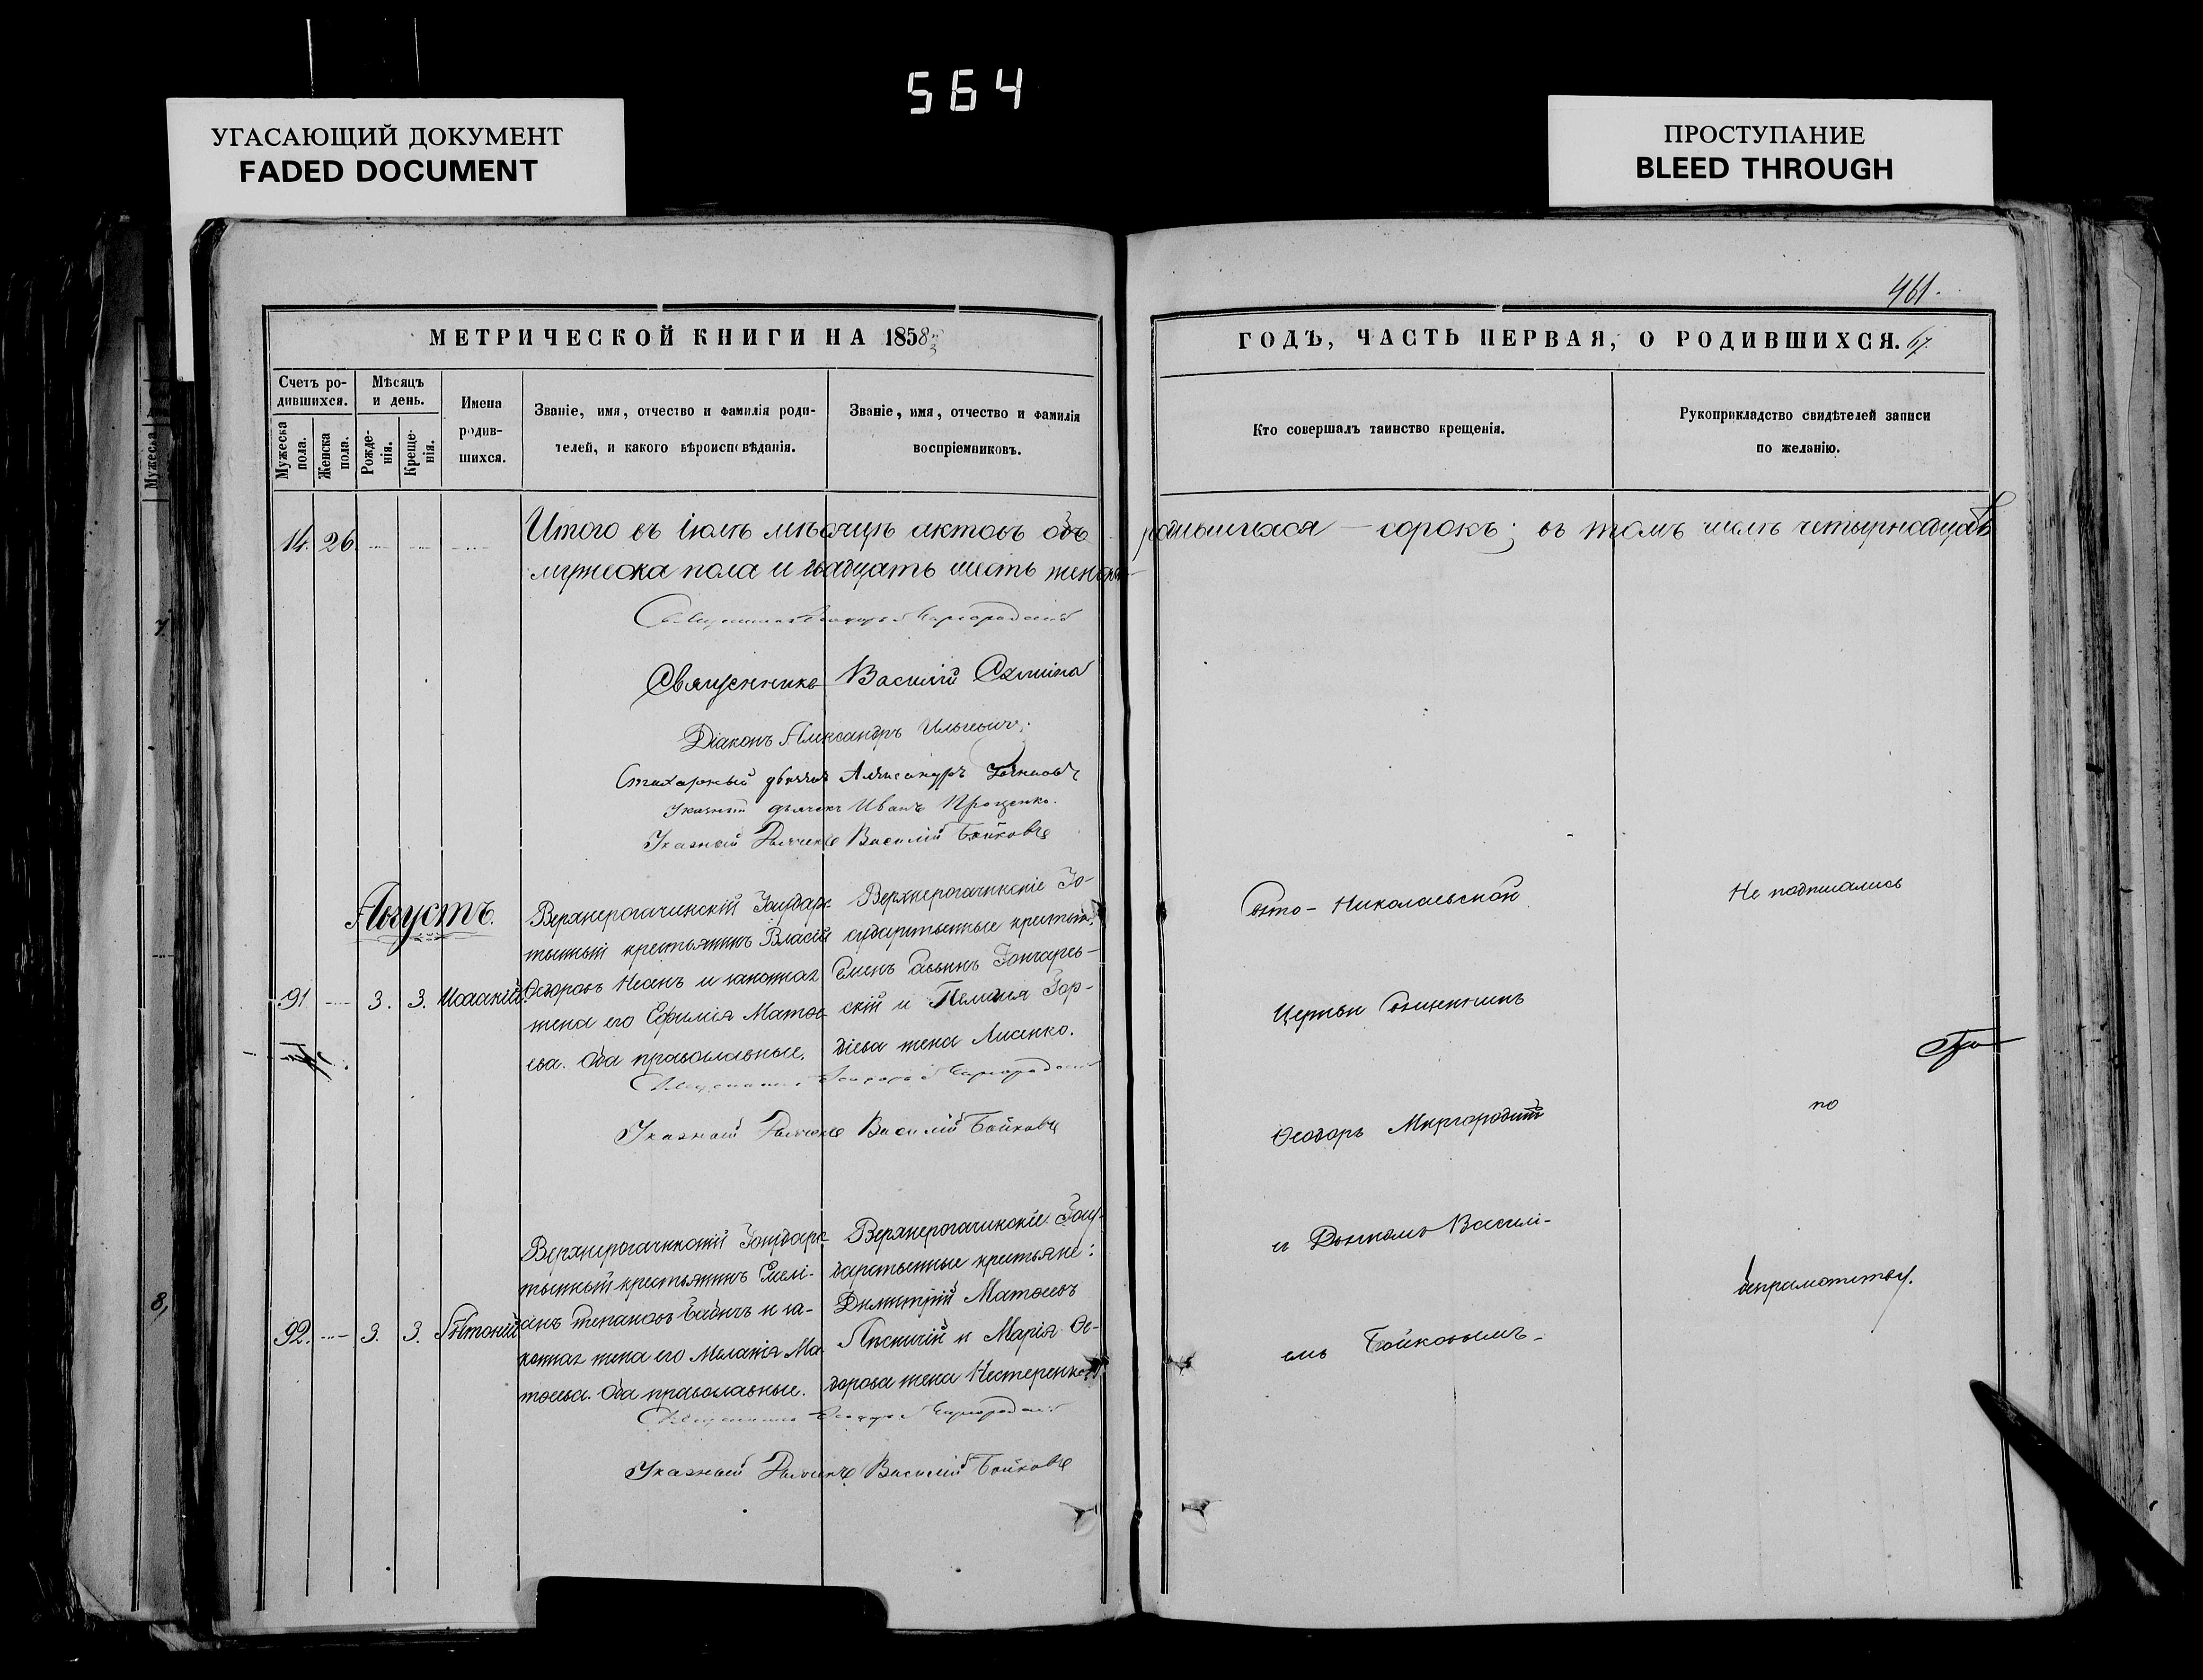 564
УГАСАЮЩИЙ ДОКУМЕНТ
FADED DOCUMENT
ПРОСТУПАНИЕ
BLEED THROUGH
461.
МЕТРИЧЕСКОЙ КНИГИ НА 1858
ГОДЪ, ЧАСТЬ ПЕРВАЯ, О РОДИВШИХСЯ. 67.
Счетъ ро-
дившихся.
Мѣсяцъ
и день.
Мужеска
пола.
Женска
пола.
Рожде-
нія.
Креще-
нія.
Имена
родив-
шихся.
Званіе, имя, отчество и фамилія роди-
телей, и какого вѣроисповѣданія.
Званіе, имя, отчество и фамилія
воспріемниковъ.
Кто совершалъ таинство крещенія.
Рукоприкладство свидѣтелей записи
по желанію.
14. 26. Итого въ іюлѣ мѣсяцѣ актовъ объ родившихся — сорокъ; въ томъ числѣ четырнадцать
мужеска пола и двадцать шесть женска
Священникъ Василій
Діаконъ Александръ Ильевичъ.
Стихарный дьячокъ Александръ
Указный дьячекъ Иванъ Проценко.
Указный Дьячекъ Василій Бойковъ
Августъ.
91 3. 3. Исаакій
Верхнерогачинскій Государс-
твенный крестьянинъ Власій
Ѳедоровъ и законная
жена его Ефимія Матѳе-
ева. Оба православные.
Верхнерогачинскіе Го-
сударственные крестьяне
Семенъ Гончарев-
скій и Гор-
діева жена Лисенко.
Указный Дьячекъ Василій Бойковъ
Свято-Николаевской
Церкви Священникъ
Ѳеодоръ Миргородскій
и Дьячкомъ Василі-
емъ Бойковымъ.
Не подписались
по
безграмотству.
92. 3. 3. Антоній
Верхнерогачинскій Государс-
твенный крестьянинъ Емелі-
анъ Степановъ Бабичъ и за-
конная жена его Меланія Ма-
тѳеева. Оба православные.
Верхнерогачинскіе Госу-
дарственные крестьяне:
Димитрій Матѳеевъ
Лѣсничій и Марія Ѳе-
дорова жена Нестеренкова
Указный Дьячекъ Василій Бойковъ
7.
8,